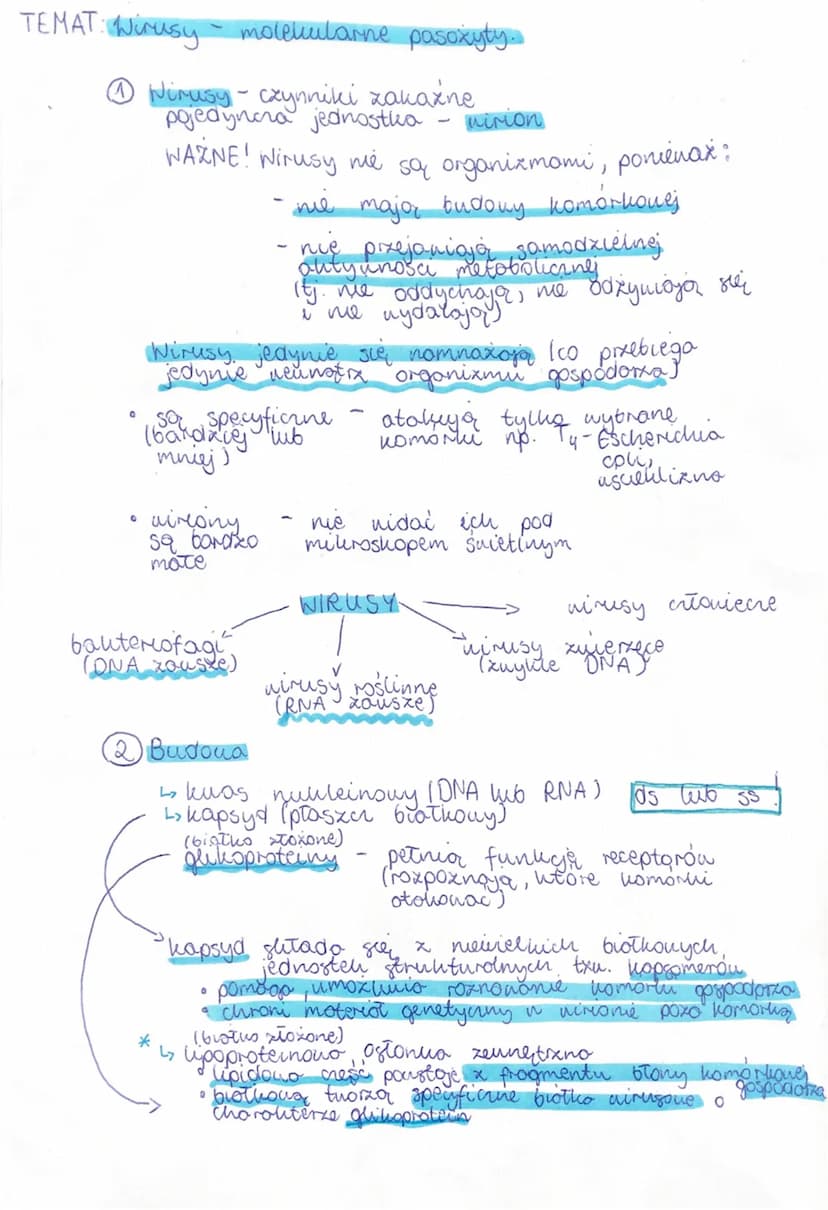 TEMAT: Wirusy - molekularne pasożyty.
① Wirusy - czynniki zakaźne
pojedyncza jednostka - wirion
WAŻNE! Wirusy nie są organizmami, ponieważ:
- nie mają budowy komórkowej
- nie przejawiają samodzielnej
aktywności metabolicznej
(tj. nie oddychają, nie odżywiają się
i nie wydalają)
Wirusy jedynie się namnażają (co przebiega
jedynie wewnątrz organizmu gospodarza)
• są specyficzne - atakują tylko wybrane
(bardziej lub komórki np. T4 - Escherichia
mniej) coli,
wścieklizna
• wiriony - nie widać ich pod
są bardzo mikroskopem świetlnym
małe
WIRUSY
wirusy człowiecze
bakteriofagi
(DNA zawsze)
wirusy zwierzęce
(zwykle DNA)
wirusy roślinne
(RNA zawsze)
② Budowa
↳ kwas nukleinowy (DNA lub RNA) ds lub ss!
↳ kapsyd (płaszcz białkowy)
(białko złożone)
glikoproteiny - pełnią funkcję receptorów
(rozpoznają, które komórki
atakować)
kapsyd składa się z niewielkich białkowych
jednostek strukturalnych tzw. kapsomerów
• pomaga, umożliwia rozpoznanie komórki gospodarza
• chroni materiał genetyczny w wirionie poza komórką
* (białko złożone)
↳ lipoproteinowa osłonka zewnętrzna
• lipidowa część powstaje z fragmentu błony komórkowej
gospodarza
• białkową tworzą specyficzne białka wirusowe o
charakterze glikoprotein